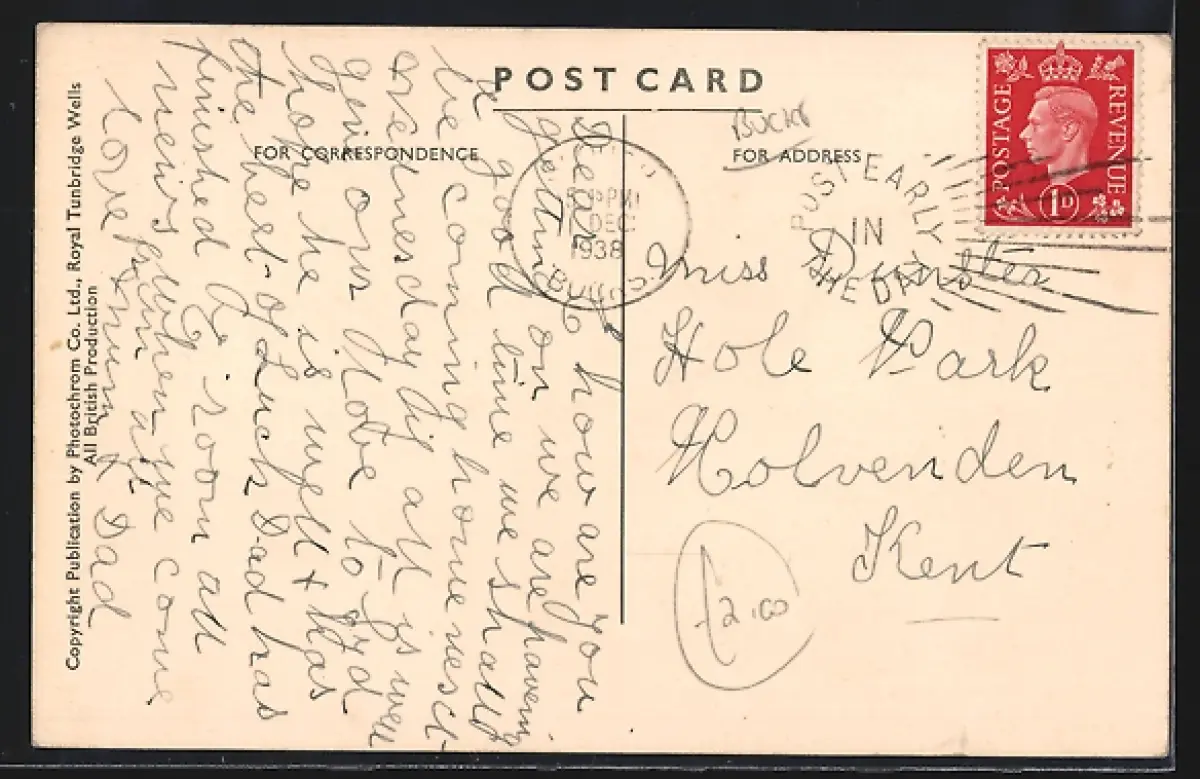 POST CARD
FOR CORRESPONDENCE
FOR ADDRESS
BUCKS
POSTAGE
REVENUE
1D
PM
DEC
1938
POST EARLY
IN
THE DAY
Dear how are you
getting on we are having
a good time we shall
be coming home nesct
wednesday if all is well
give our love to
hope he is well + has
the best of Luck Dad has
finished room all
news when we come
love from Mum & Dad
Miss Dunster
Hole Park
Rolvenden
Kent
£2.00
Copyright Publication by Photochrom Co. Ltd., Royal Tunbridge Wells
All British Production